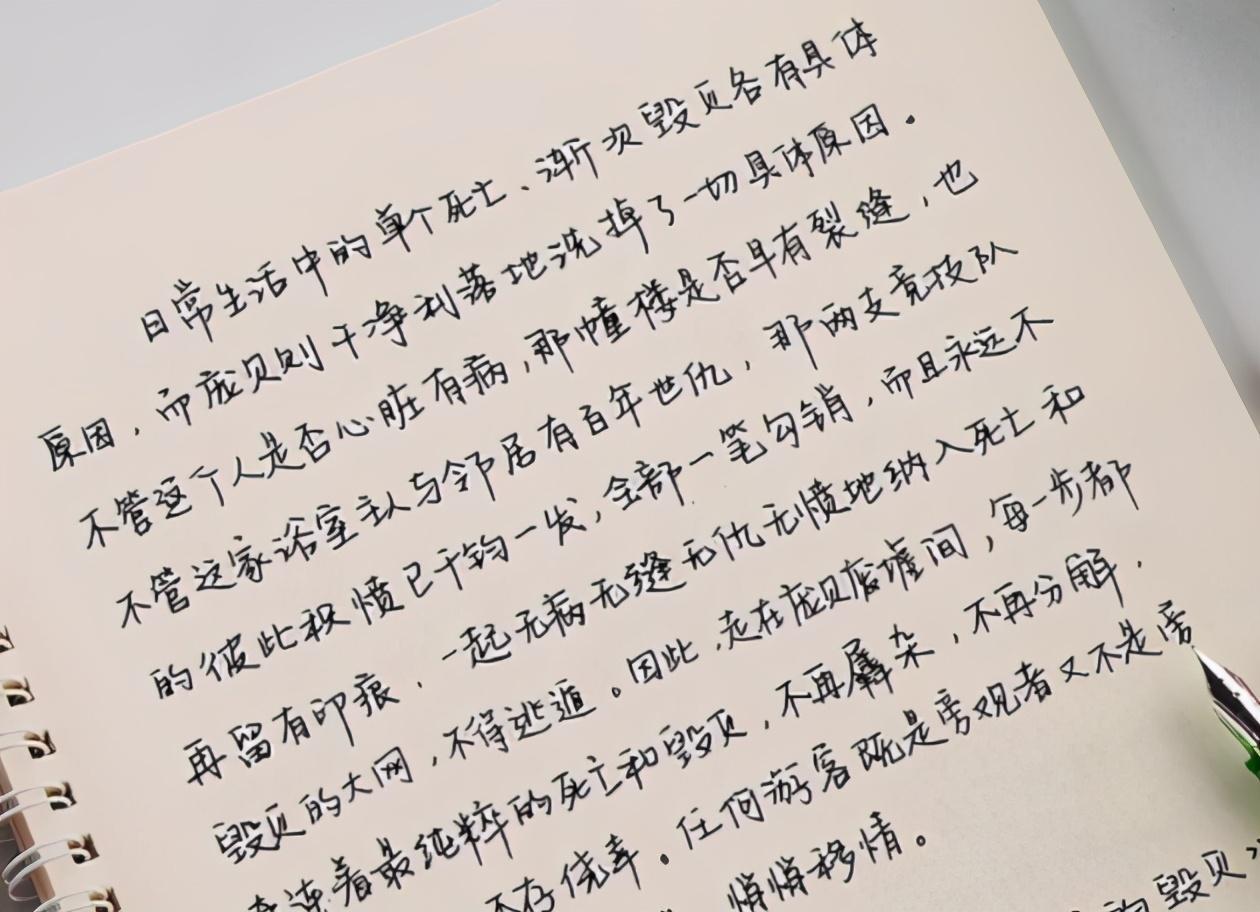 日常生活中的单个死亡、渐次毁灭各有具体
原因,而庞贝则干净利落地洗掉了一切具体原因。
不管这个人是否心脏有病,那幢楼是否早有裂缝,也
不管这家浴室主人与邻居有百年世仇,那两支竞技队
的彼此积愤已千钧一发,全部一笔勾销,而且永远不
再留有印痕,一起无病无缝无仇无愤地纳入死亡和
毁灭的大网,不得逃遁。因此,走在庞贝废墟间,每一步都
牵连着最纯粹的死亡和毁灭,不再羼杂,不再分解,
不存侥幸。任何游客既是旁观者又不是旁
悄悄移情。
的毁灭